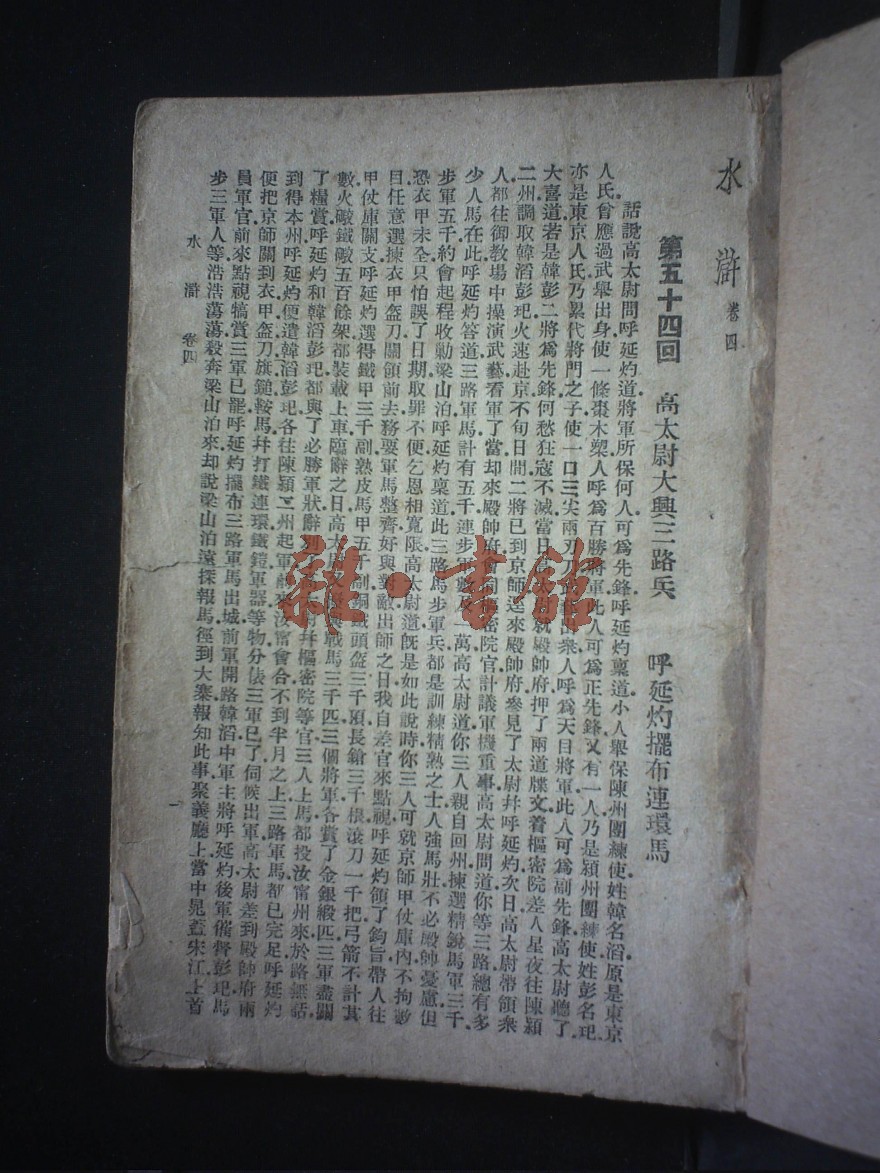 水滸 卷四
第五十四回 高太尉大興三路兵 呼延灼擺布連環馬
話說高太尉問呼延灼道將軍所保何人可爲先鋒呼延灼稟道小人舉保陳州團練使姓韓名滔原是東京
人氏曾應過武舉出身使一條棗木槊人呼爲百勝將軍此人可爲正先鋒又有一人乃是潁州團練使姓彭名玘
亦是東京人氏乃累代將門之子使一口三尖兩刃刀武藝出衆人呼爲天目將軍此人可爲副先鋒高太尉聽了
大喜道若是韓彭二將爲先鋒何愁狂寇不滅當日高太尉就殿帥府押了兩道牒文着樞密院差人星夜往陳潁
二州調取韓滔彭玘火速赴京不旬日間二將已到京師逕來殿帥府參見了太尉幷呼延灼次日高太尉帶領衆
人都往御教場中操演武藝看軍了當却來殿帥府會同樞密院官計議軍機重事高太尉問道你等三路總有多
少人馬在此呼延灼答道三路軍馬計有五千連步軍數及一萬高太尉道你三人親自回州揀選精銳馬軍三千
步軍五千約會起程收勦梁山泊呼延灼稟道此三路馬步軍兵都是訓練精熟之士人強馬壯不必殿帥憂慮但
恐衣甲未全只怕誤了日期取罪不便乞恩相寬限高太尉道旣是如此說時你三人可就京師甲仗庫內不拘數
目任意選揀衣甲盔刀關領前去務要軍馬整齊好與對敵出師之日我自差官來點視呼延灼領了鈞旨帶人往
甲仗庫關支呼延灼選得鐵甲三千副熟皮馬甲五千副銅鐵頭盔三千頂長鎗三千根滾刀一千把弓箭不計其
數火礮鐵礮五百餘架都裝載上車臨辭之日高太尉又撥與戰馬三千匹三個將軍各賞了金銀緞匹三軍盡關
了糧賞呼延灼和韓滔彭玘都與了必勝軍狀辭別了高太尉幷樞密院等官三人上馬都投汝甯州來於路無話
到得本州呼延灼便遣韓滔彭玘各往陳潁二州起軍前來汝甯會合不到半月之上三路軍馬都已完足呼延灼
便把京師關到衣甲盔刀旗鎗鞍馬幷打鐵連環鐵鎧軍器等物分俵三軍已了伺候出軍高太尉差到殿帥府兩
員軍官前來點視犒賞三軍已罷呼延灼擺布三路軍馬出城前軍開路韓滔中軍主將呼延灼後軍催督彭玘馬
步三軍人等浩浩蕩蕩殺奔梁山泊來却說梁山泊遠探報馬徑到大寨報知此事聚義廳上當中晁蓋宋江上首
水滸 卷四
一
雜·書館